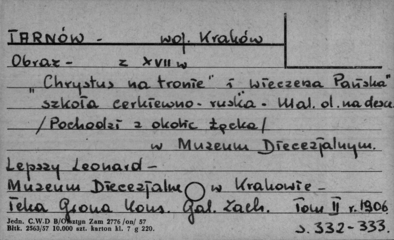 TARNÓW - woj. Kraków
Obraz - z XVII w
„Chrystus na tronie" i Wieczerza Pańska"
szkoła cerkiewno - ruska - Mal. ol. na desce
/Pochodzi z okolic Łącka/
w Muzeum Diecezjalnym.
Lepszy Leonard -
Muzeum Diecezjalne w Krakowie -
Teka Grona Kons. Gal. Zach. Tom II r. 1906
s. 332-333.
Jedn. C.W.D B/Olsztyn Zam 2776/on/57
Blsk. 2563/57 10.000 szt. karton kl. 7 g 220.